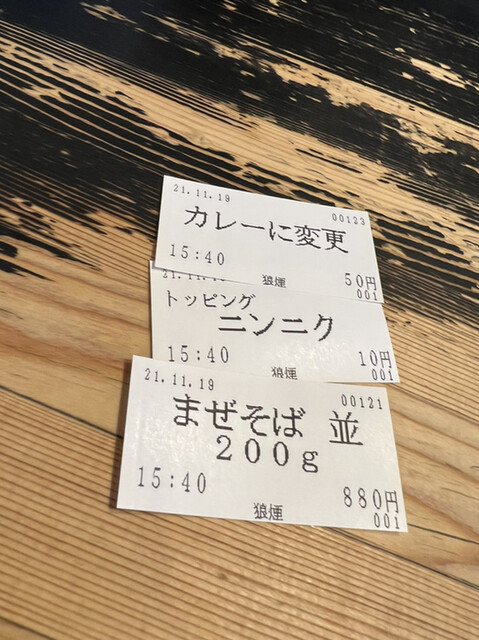 21.11.19
00123
カレーに変更
15:40
50円
狼煙
001
トッピング
ニンニク
15:40
10円
狼煙
001
21.11.19
00121
まぜそば 並
200g
15:40
880円
狼煙
001